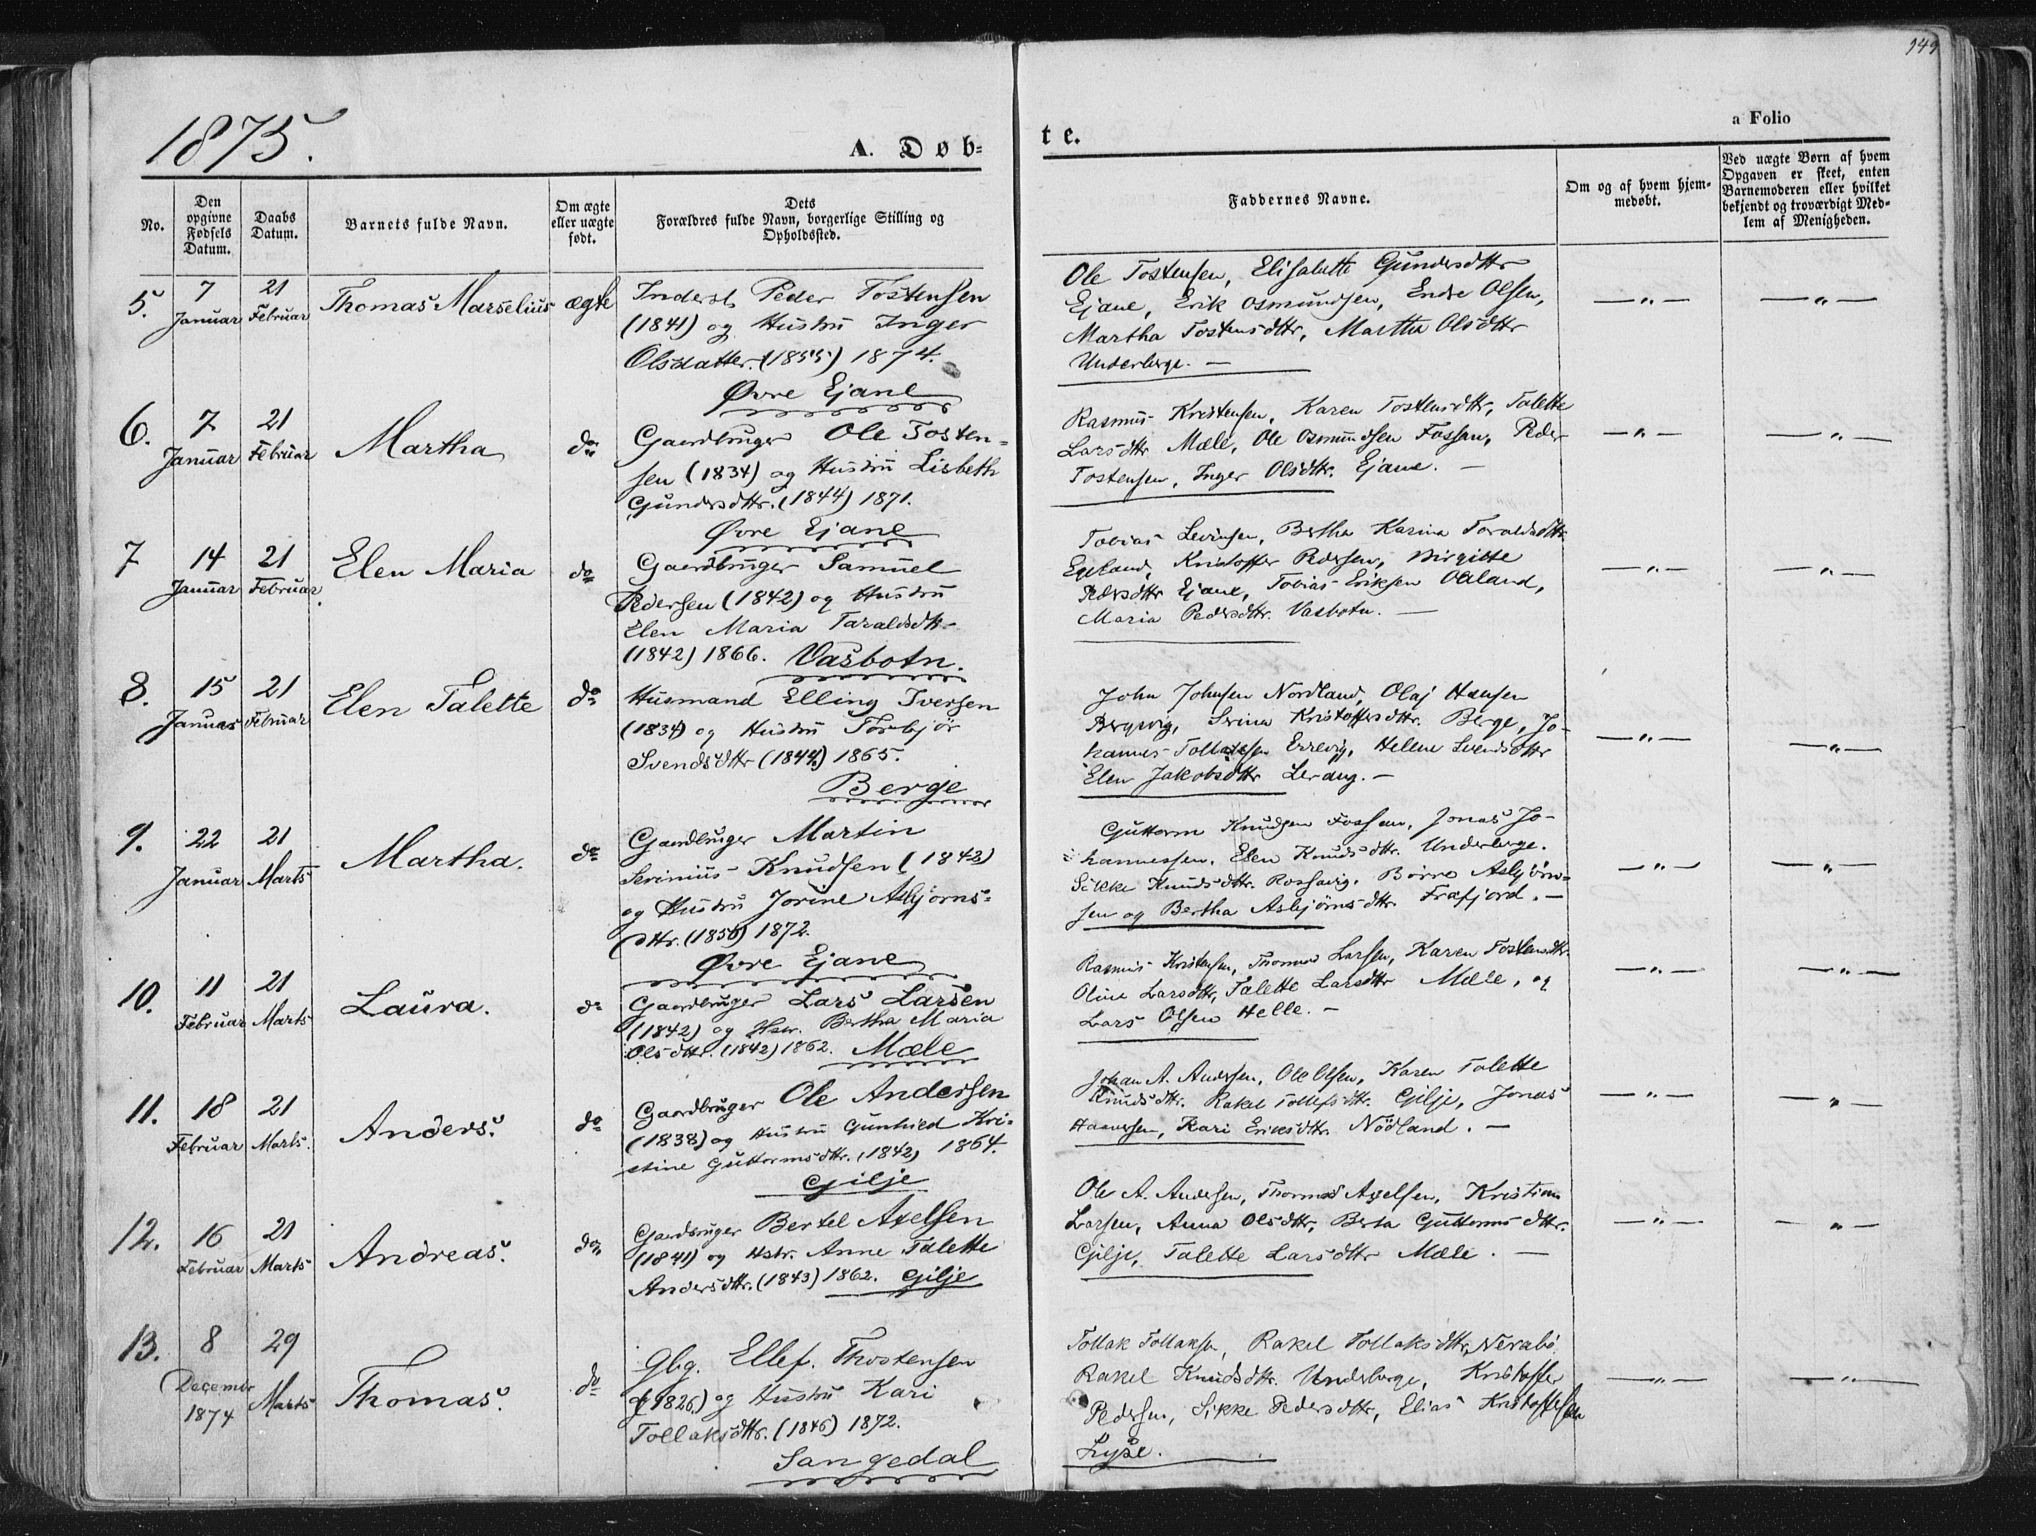 149
1875.
A. Døb=
te.
a Folio
No.
Den opgivne Fødsels Datum.
Daabs Datum.
Barnets fulde Navn.
Om ægte eller uægte født.
Dets Forældres fulde Navn, borgerlige Stilling og Opholdssted.
Faddernes Navne.
Om og af hvem hjemmedøbt.
Ved uægte Børn af hvem Opgaven er skeet, enten Barnemoderen eller hvilket bekjendt og troværdigt Medlem af Menigheden.
5.
7 Januar
21 Februar
Thomas Marselius
ægte
Inderst Peder Tostensen
(1841) og Hustru Inger
Olsdatter. (1855) 1874.
Øvre Ejane
Ole Tostensen, Elisabette Gundersdttr
Ejane, Erik Osmundsen, Endre Olsen,
Martha Tostensdttr, Martha Olsdttr
Underberge. —
— " —
— " —
6.
7 Januar
21 Februar
Martha
do
Gaardbruger Ole Tosten=
sen (1834) og Hustru Lisbeth
Gundersdttr. (1844) 1871.
Øvre Ejane
Rasmus Kristensen, Karen Tostensdttr, Talette
Larsdttr Mæle, Ole Osmundsen Fossan, Peder
Tostensen, Inger Olsdttr. Ejane. —
— " —
— " —
7
14 Januar
21 Februar.
Elen Maria
do
Gaardbruger Samuel
Pedersen (1842) og Hustru
Elen Maria Taraldsdtt-
(1842) 1866. Vasbotn.
Tobias Levinsen, Bertha Karina Taraldsdttr
Eikeland, Kristoffer Pedersen, Birgitte
Pedersdttr Ejane, Tobias Eriksen Oaland,
Maria Pedersdttr. Vasbotn. —
— " —
— " —
8.
15 Januar
21 Februar
Elen Talette
do
Husmand Elling Iversen
(1834) og Hustru Torbjør
Svendsdttr (1844) 1865.
Berge
John Johnsen Nordland, Olaj Hansen
Bergevig, Serina Kristoffersdttr. Berge, Jo-
hannes Tollaksen Errevig, Helene Svendsdttr
Elen Jakobsdttr Lerang. —
— " —
— " —
9.
22 Januar
21 Marts
Martha.
do
Gaardbruger Martin
Serinius Knudsen (1842)
og Hustru Jorine Asbjørns=
dttr. (1850) 1872.
Øvre Ejane
Guttorm Knudsen Fossan, Jonas Jo-
hannessen, Elen Knudsdttr. Underberge.
Sikke Knudsdttr. Rossavig, Børre Asbjørn=
sen og Bertha Asbjørnsdttr. Frafjord. —
— " —
— " —
10.
11 Februar
21 Marts
Laura.
do
Gaardbruger Lars Larsen
(1842) og Hstr. Bertha Maria
Olsdttr. (1842) 1862. Mæle
Rasmus Kristensen, Thomas Larsen, Karen Tostensdttr
Oline Larsdttr, Talette Larsdttr Mæle, og
Lars Olsen Helle. —
— " —
— " —
11.
18 Februar
21 Marts.
Anders.
do
Gaardbruger Ole Andersen
(1838) og Hustru Gunhild Kri-
stine Guttormsdttr. (1842) 1864.
Gilje
Johan A. Andersen, Ole Olsen, Karen Talette
Knudsdttr. Rakel Tollefsdttr. Gilje, Jonas
Hansen, Kari Eriksdttr. Nödland. —
— " —
— " —
12.
16 Februar
21 Marts
Andreas.
do
Gaardbruger Bertel Axelsen
(1841) og Hstr. Anne Talette
Andersdttr. (1843) 1862. Gilje
Ole A. Andersen, Thomas Axelsen, Kristian
Larsen, Anna Olsdttr, Berta Guttormsdttr.
Gilje, Talette Larsdttr Mæle. —
— " —
— " —
13.
8 Decemer 1874
29 Marts
Thomas.
do
Gbg. Ellef. Thostensen
(1826) og Hustru Kari
Tollaksdttr. (1846) 1872.
Sangedal
Tollak Tollaksen, Rakel Tollaksdttr, Nerabö.
Rakel Knudsdttr. Underberge, Kristoffer
Pedersen, Sikke Pedersdttr, Elias Kristoffersen
Lyse.
— " —
— " —